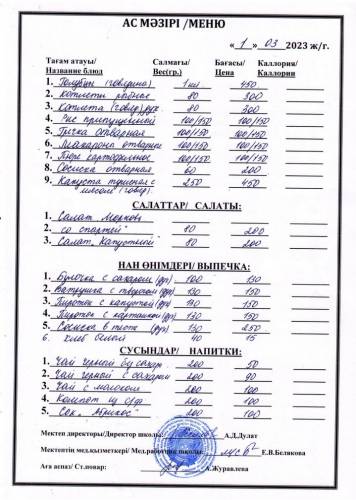 АС МӘЗІРІ /МЕНЮ
« 1 » 03 2023 ж/г.
Тағам атауы/ Салмағы/ Бағасы/ Каллория/
Название блюд Вес(гр.) Цена Каллории
1. Голубцы (говядина) 1 кл 450
2. Котлеты рыбные 80 300
3. Котлета (говяд) рук 80 300
4. Рис припущенный 100/150 100/150
5. Гречка отварная 100/150 100/150
6. Макароны отварные 100/150 100/150
7. Пюре картофельное 100/150 100/150
8. Сосиска отварная 60 200
9. Капуста тушеная с 250 450
мясом (говяд)
САЛАТТАР/ САЛАТЫ:
1. Салат Морковь
2. со спаржей" 80 200
3. Салат, Капустный 80 200
НАН ӨНІМДЕРІ/ ВЫПЕЧКА:
1. Булочка с сахаром (рук) 100 130
2. Ватрушка с творогом (рук) 130 150
3. Пирожок с капустой (рук) 130 150
4. Пирожок с картошкой (рук) 130 150
5. Сосиска в тесте (рук) 130 250
6. хлеб белый 40 15
СУСЫНДАР/ НАПИТКИ:
1. Чай черный без сахар 200 50
2. Чай черный с сахаром 200 90
3. Чай с молоком 200 100
4. Компот из с/ф 200 100
5. Сок "Абрикос" 200 100
Мектеп директоры/Директор школы: А.Д.Дулат
Мектептін мед.қызметкері/ Мед.работник школы: Е.В.Белякова
Аға аспаз/ Ст.повар: А.Журавлева